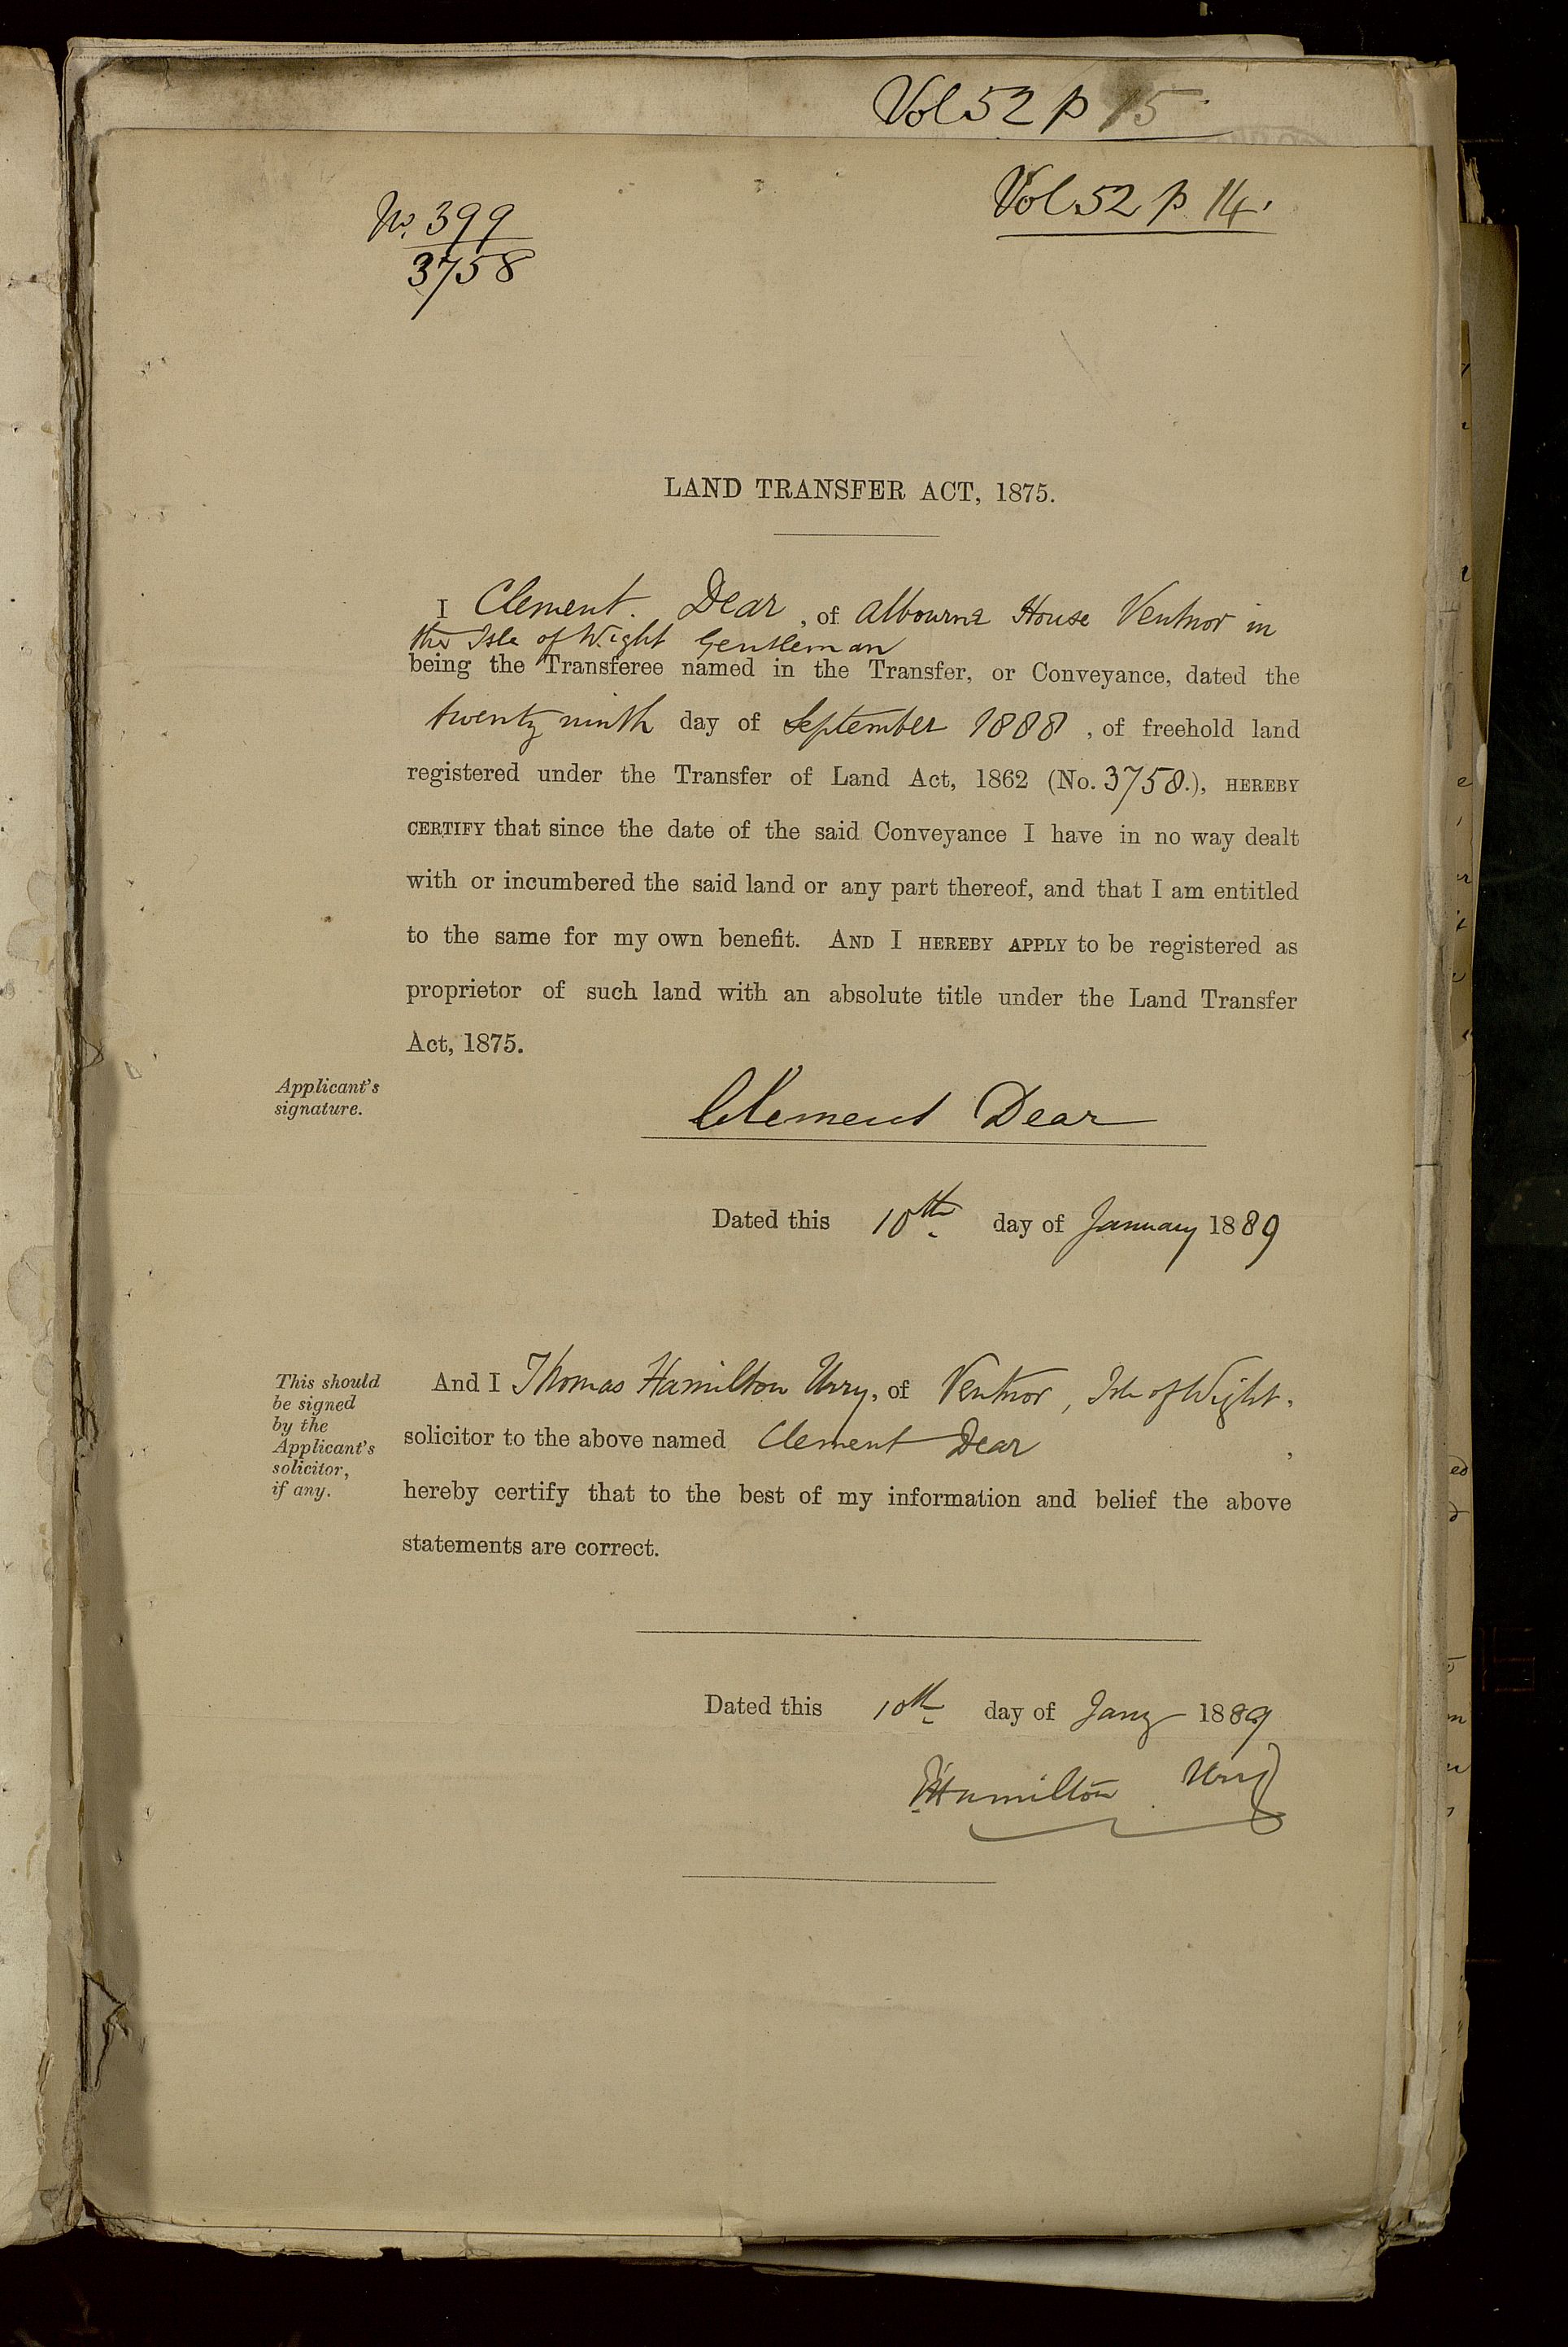 Vol 52 p 15
Vol 52 p 14.
No. 399
3758
LAND TRANSFER ACT, 1875.
I Clement Dear, of Albourne House Ventnor in
the Isle of Wight Gentleman
being the Transferee named in the Transfer, or Conveyance, dated the
twenty ninth day of September 1888, of freehold land
registered under the Transfer of Land Act, 1862 (No. 3758.), HEREBY
CERTIFY that since the date of the said Conveyance I have in no way dealt
with or incumbered the said land or any part thereof, and that I am entitled
to the same for my own benefit. AND I HEREBY APPLY to be registered as
proprietor of such land with an absolute title under the Land Transfer
Act, 1875.
Applicant's
signature.
Clement Dear
Dated this 10th day of January 1889
This should
be signed
by the
Applicant's
solicitor,
if any.
And I Thomas Hamilton Urry, of Ventnor, Isle of Wight,
solicitor to the above named Clement Dear,
hereby certify that to the best of my information and belief the above
statements are correct.
Dated this 10th day of Jany 1889
Hamilton Urry